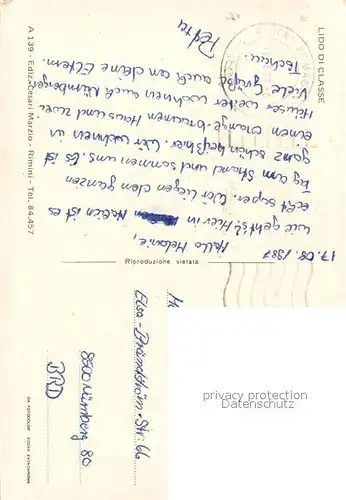 LIDO DI CLASSE
17.08.1987
Hallo Melanie,
wie geht's? Hier in Italien ist es
echt super. Wir liegen den ganzen
Tag am Strand und sonnen uns. Es ist
ganz schön heiß hier. Wir wohnen in
einem orange-braunen Haus und zwei
Häuser weiter wohnen auch Nürnberger.
Viele Grüße auch an deine Eltern.
Tschau
Petra
A 139 - Ediz. Cesari Marzio - Rimini - Tel. 84.457
Riproduzione vietata
Elsa-Brändström-Str. 66
8500 Nürnberg 80
BRD
privacy protection
Datenschutz